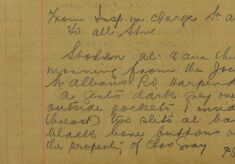 From Insp in charge St a
to all Stns
Stolen at 8 am this
morning from the Joc
St Albans Rd Harpend
a gents dark grey ove
outside pockets 1 insid
(breast) two slits at bac
black bone buttons
the property of Chas Gray
PS